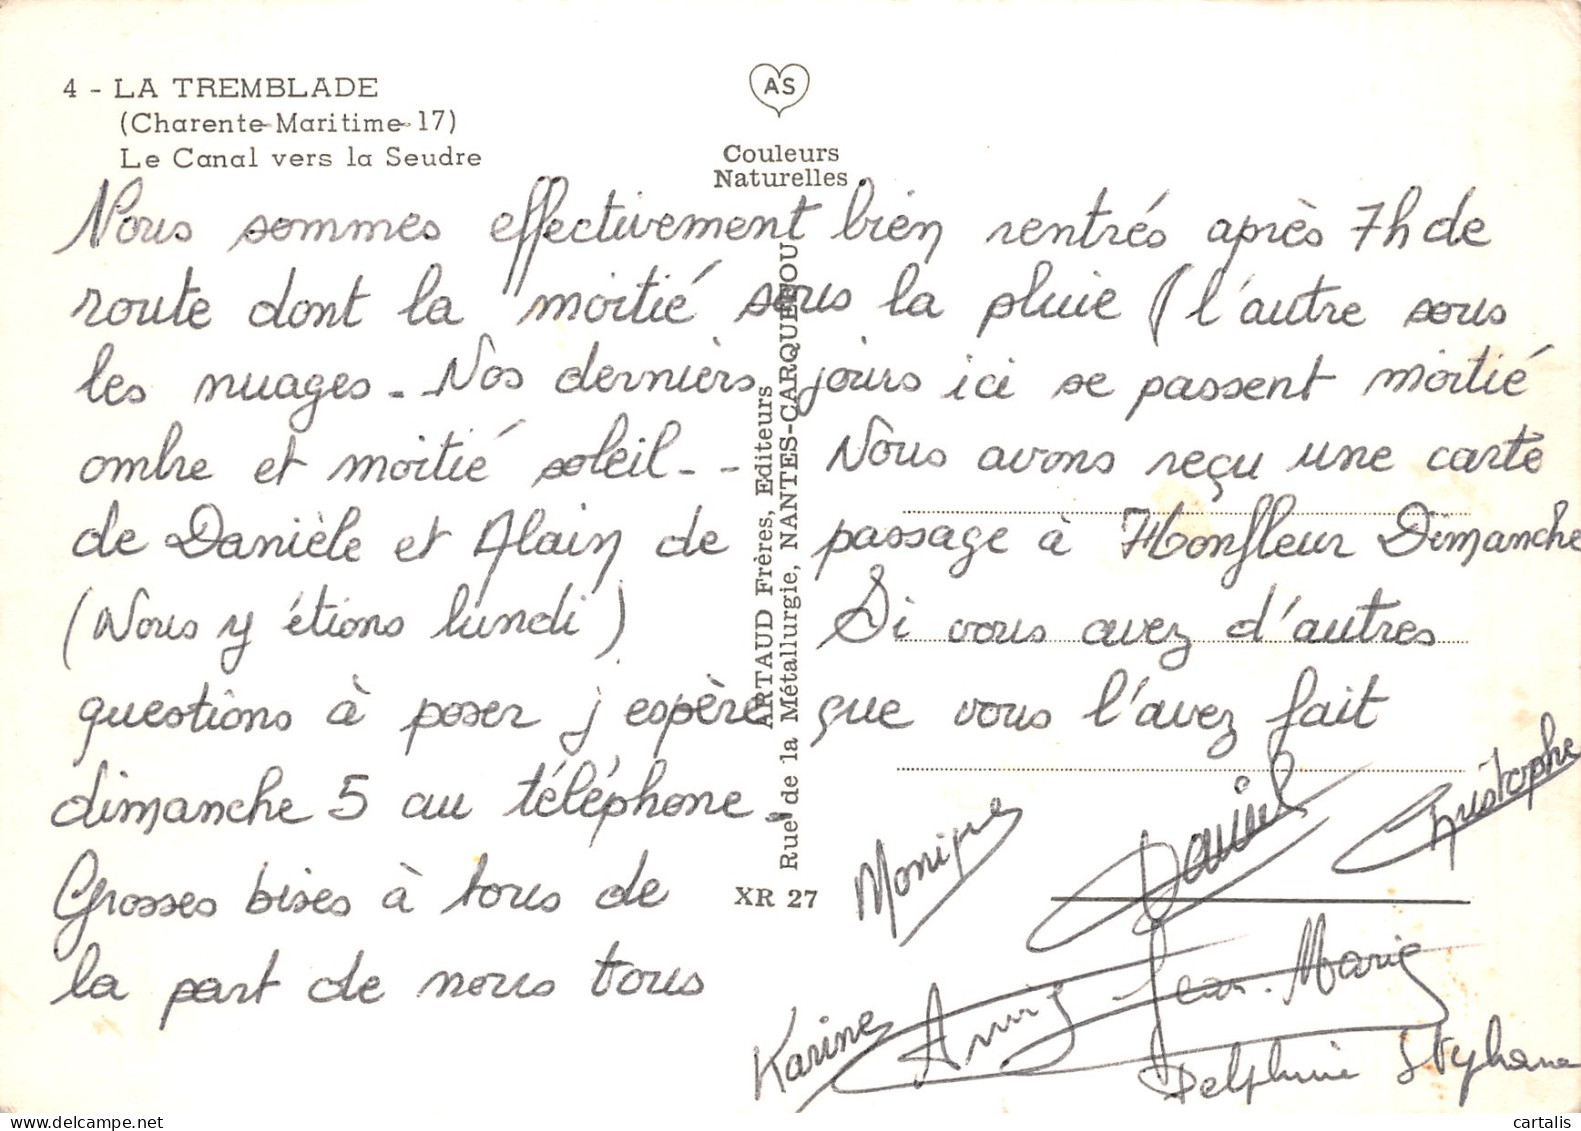 4 - LA TREMBLADE
(Charente-Maritime-17)
Le Canal vers la Seudre
AS
Couleurs
Naturelles
Nous sommes effectivement bien rentrés après 7h de
route dont la moitié sous la pluie (l'autre sous
les nuages - Nos derniers jours ici se passent moitié
ombre et moitié soleil - - Nous avons reçu une carte
de Danièle et Alain de passage à Honfleur Dimanche
(Nous y étions lundi) Si vous avez d'autres
questions à poser j'espère que vous l'avez fait
dimanche 5 au téléphone -
Grosses bises à tous de
la part de nous tous
ARTAUD Frères, Editeurs
Rue de la Métallurgie, NANTES-CARQUEFOU
XR 27
Monique
Daniel
Christophe
Karine
Jean-Marie
Delphine Stéphane
cartalis